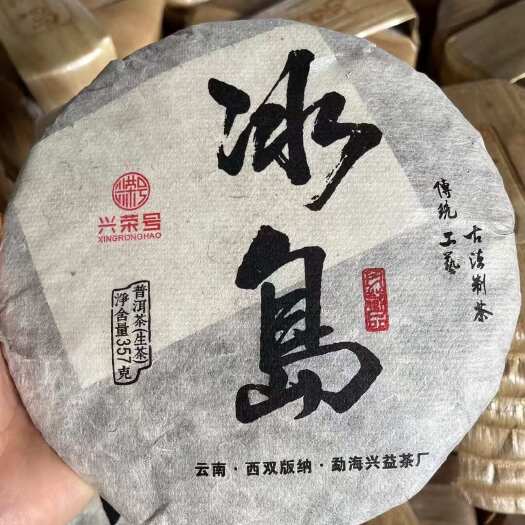 冰岛
古法制茶
傳統工藝
兴荣号
XINGRONGHAO
普洱茶(生茶)
淨含量357克
云南·西双版纳·勐海兴益茶厂